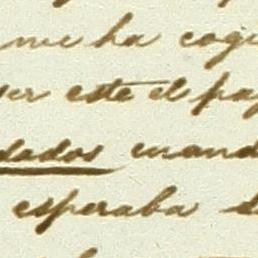 me ha cogi
ser este el pag
dados cuand
esperaba d